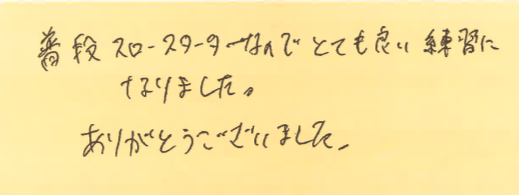 普段スロースターターなのでとても良い練習に
なりました。
ありがとうございました。